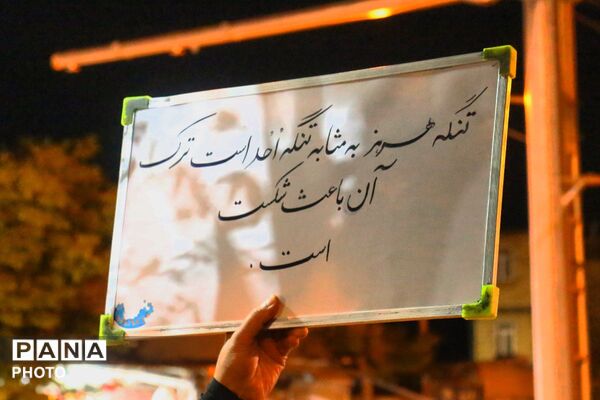 تنگه هرمز به مثابه تنگه اُحُد است ترک
آن باعث شکست
است .
PANA
PHOTO